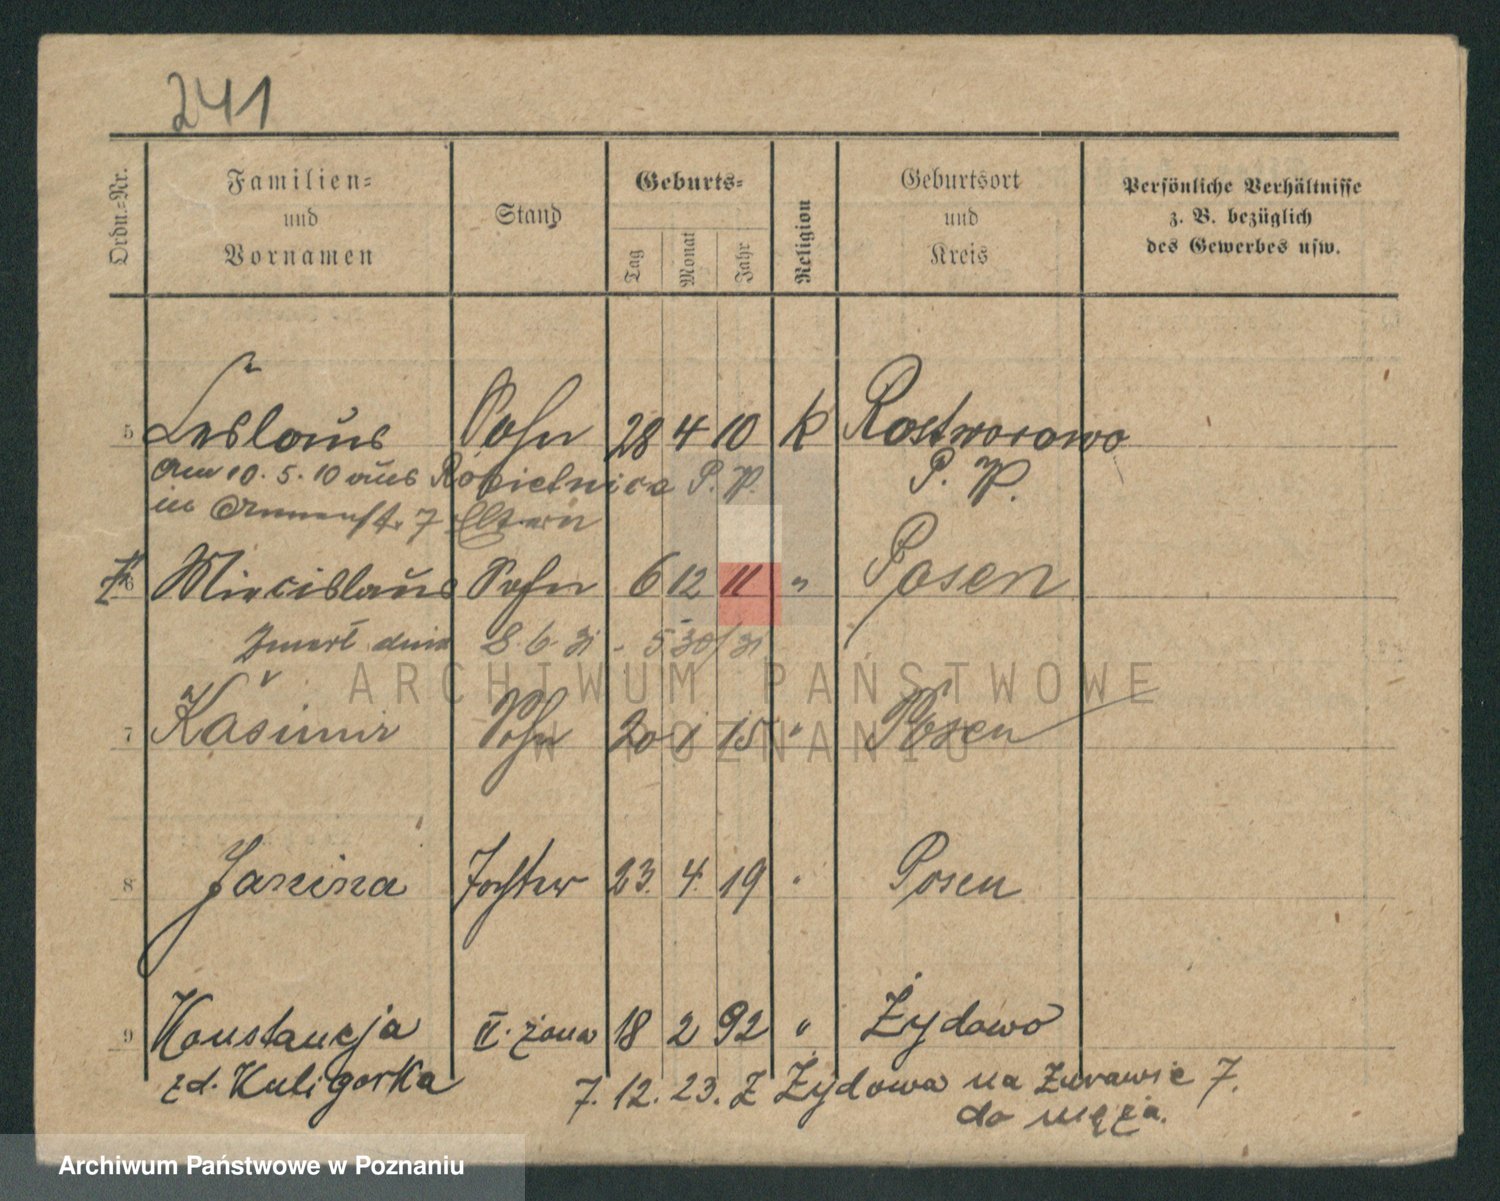 241
Ordn.-Nr.
Familien-
und
Vornamen
Stand
Geburts-
Tag
Monat
Jahr
Religion
Geburtsort
und
Kreis
Persönliche Verhältnisse
z. B. bezüglich
des Gewerbes usw.
5 Leslaus Sohn 28 4 10 K Rostworowo
Am 10. 5. 10 aus Kobielnica P. W. P. W.
in 7 Eltern
6 Miecislaus Sohn 6 12 11 " Posen
Zmarł dnia 8. 6. 31 - 530/31
7 Kasimir Sohn 20 1 15 " Posen
ARCHIWUM PAŃSTWOWE
W POZNANIU
8 Janina Tochter 23. 4. 19 " Posen
9 Konstancja II. żona 18 2 92 " Żydowo
zd. Kuligorka 7. 12. 23. z Żydowa na Żurawie 7.
do męża.
Archiwum Państwowe w Poznaniu